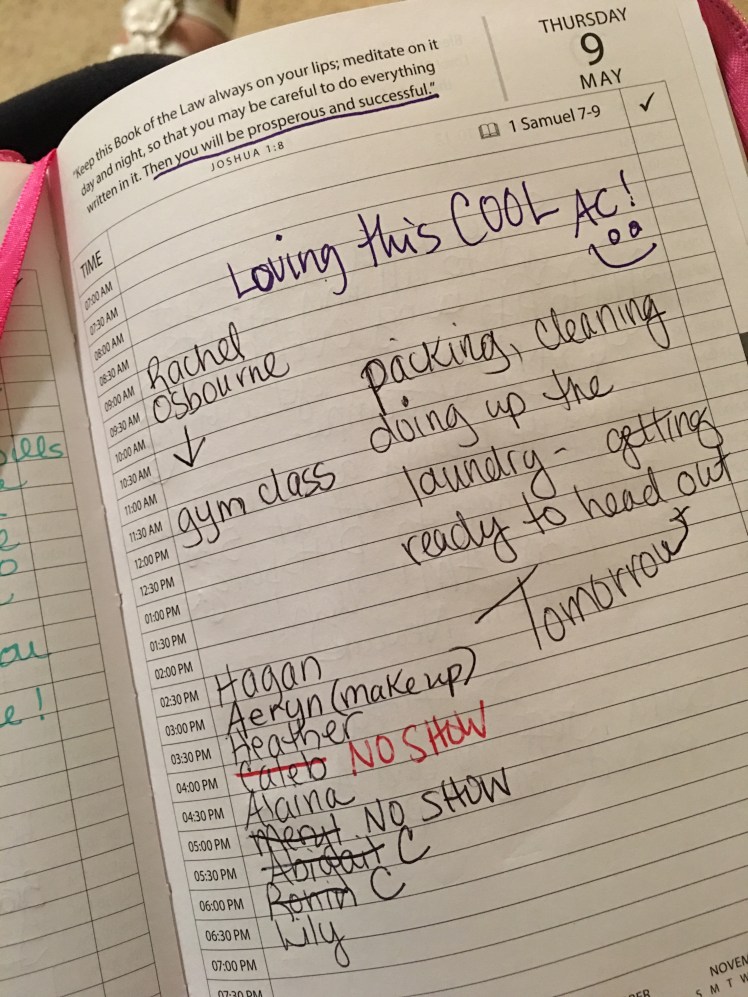 THURSDAY
9
MAY
"Keep this Book of the Law always on your lips; meditate on it
day and night, so that you may be careful to do everything
written in it. Then you will be prosperous and successful."
JOSHUA 1:8
1 Samuel 7-9 ✓
TIME
Loving this COOL AC!
07:00 AM
07:30 AM
08:00 AM
08:30 AM Rachel
09:00 AM Osbourne
09:30 AM
10:00 AM
10:30 AM
11:00 AM gym class
11:30 AM
12:00 PM
12:30 PM
01:00 PM
01:30 PM
packing, cleaning
doing up the
laundry - getting
ready to head out
Tomorrow
02:00 PM
02:30 PM Hagan
03:00 PM Aeryn (make up)
03:30 PM Heather
04:00 PM Caleb NO SHOW
04:30 PM Alaina
05:00 PM NO SHOW
05:30 PM Abigail C
06:00 PM Ronin C
06:30 PM Lily
07:00 PM
07:30 PM
S M T W